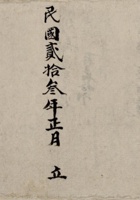 民國貳拾叁年正月 立